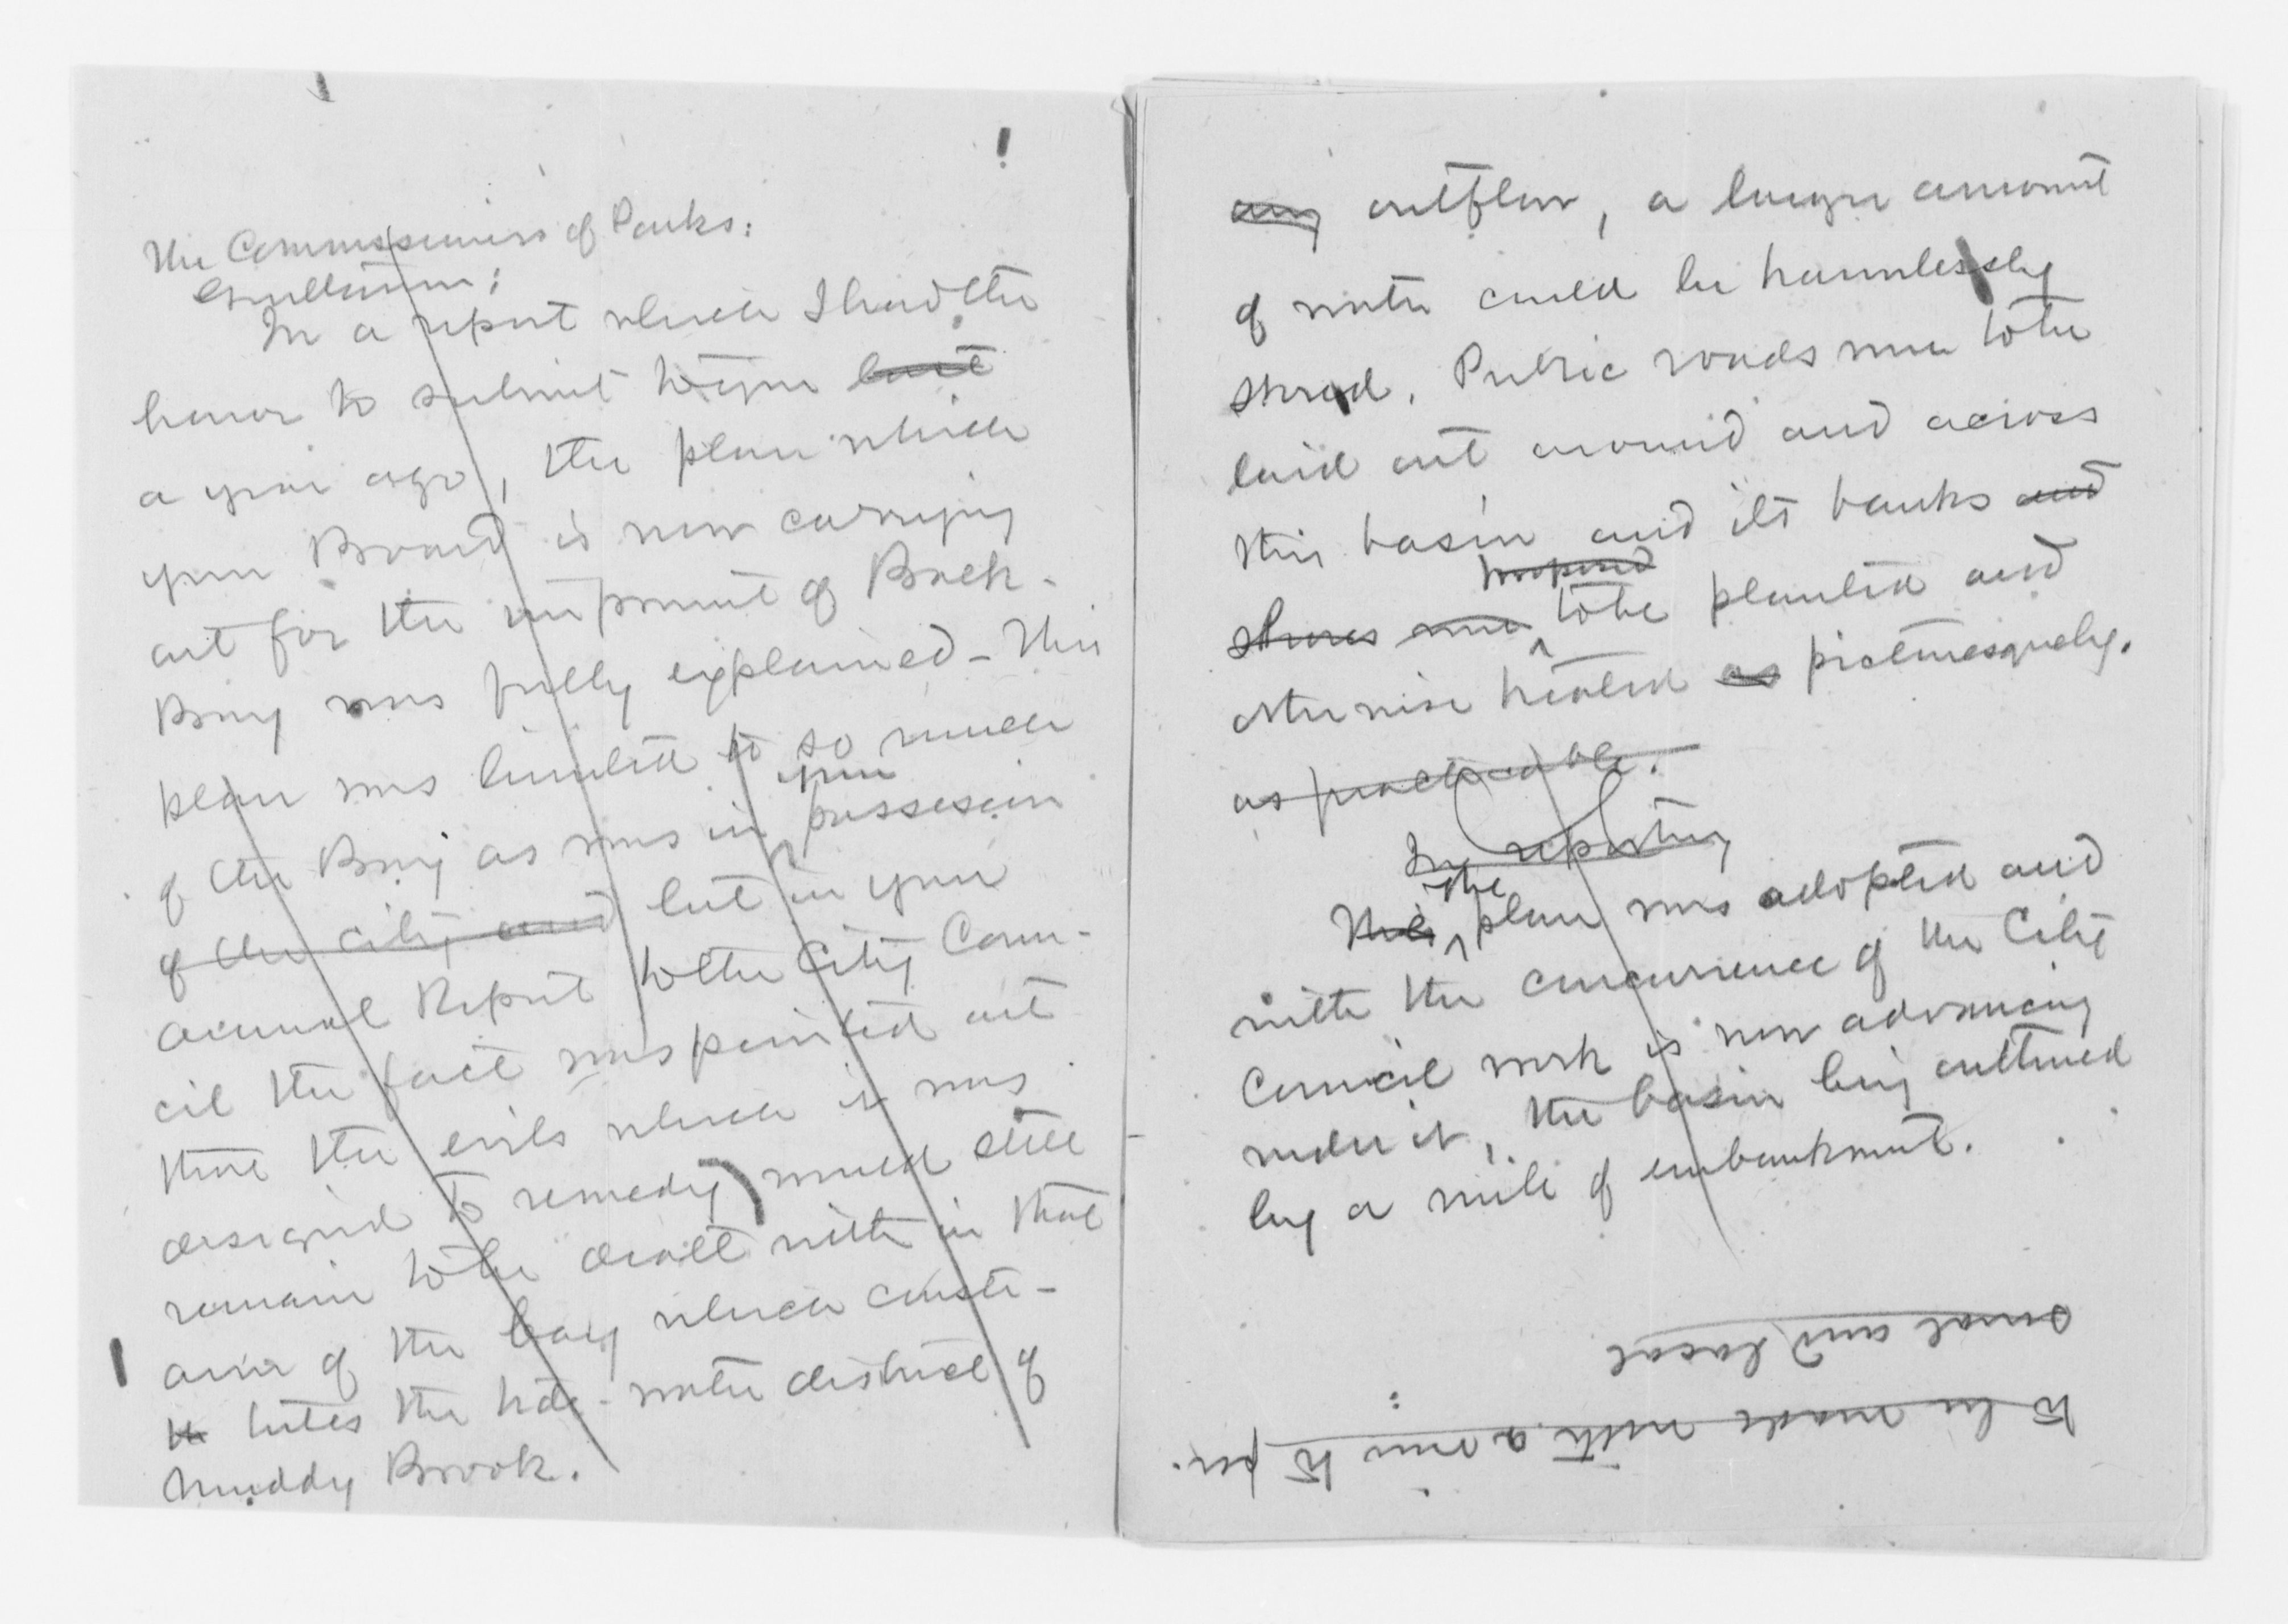 The Commissioners of Parks:
Gentlemen;
In a report which I had the
honor to submit to you last
a year ago, the plan which
your Board is now carrying
out for the improvment of Back-
Bay was fully explained - This
plan was limited to so much
your
of the Bay as was in possession
of the city and but in your
annual Report to the City Coun-
cil the fact was pointed out
that the evils which it was
designed to remedy would still
remain to be dealt with in that
area of the bay which consti-
tu tutes the tide-water district of
Muddy Brook.
any outflow, a larger amount
of water could be harmlessly
stored. Public roads were to be
laid out around and across
this basin and its banks and
proposed
shores were to be planted and
otherwise treated as picturesquely.
as practicable.
In reporting
the
This plan was adopted and
with the concurrence of the City
Council work is now advancing
under it, the basin being outlined
by a mile of embankment.
to be made with a view to per-
sonal and local